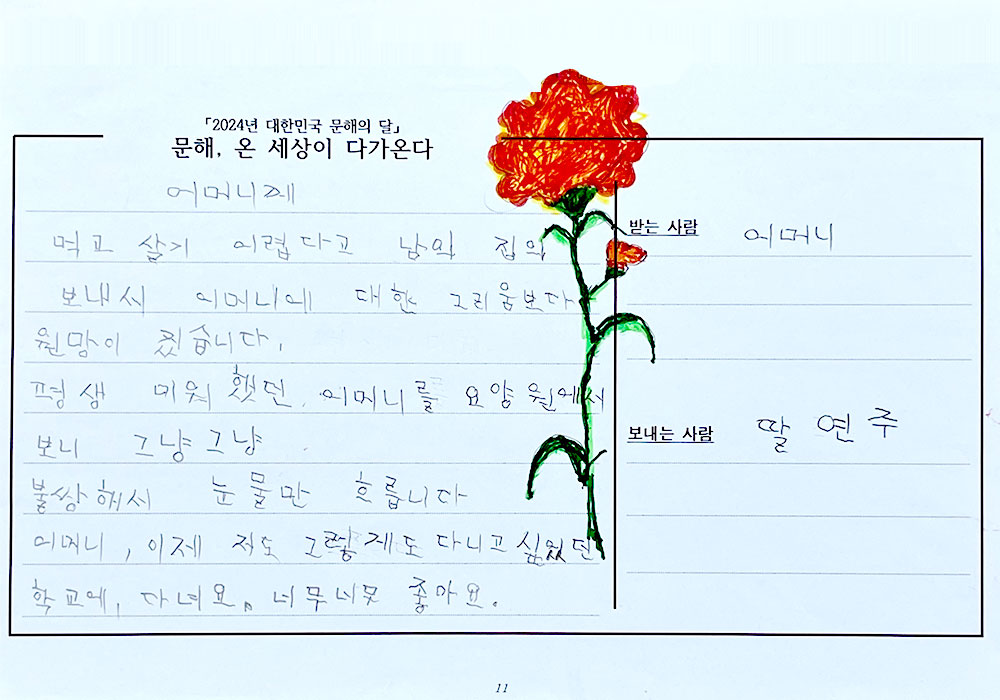 「2024년 대한민국 문해의 달」
문해, 온 세상이 다가온다
어머니께
먹고 살기 어렵다고 남의 집의
보내서 어머니에 대한 그리움보다
원망이 컸습니다.
평생 미워했던 어머니를 요양원에서
보니 그냥그냥
불쌍해서 눈물만 흐릅니다
어머니, 이제 저도 그렇게도 다니고 싶었던
학교에, 다녀요. 너무너무 좋아요.
받는 사람 어머니
보내는 사람 딸 연주
11